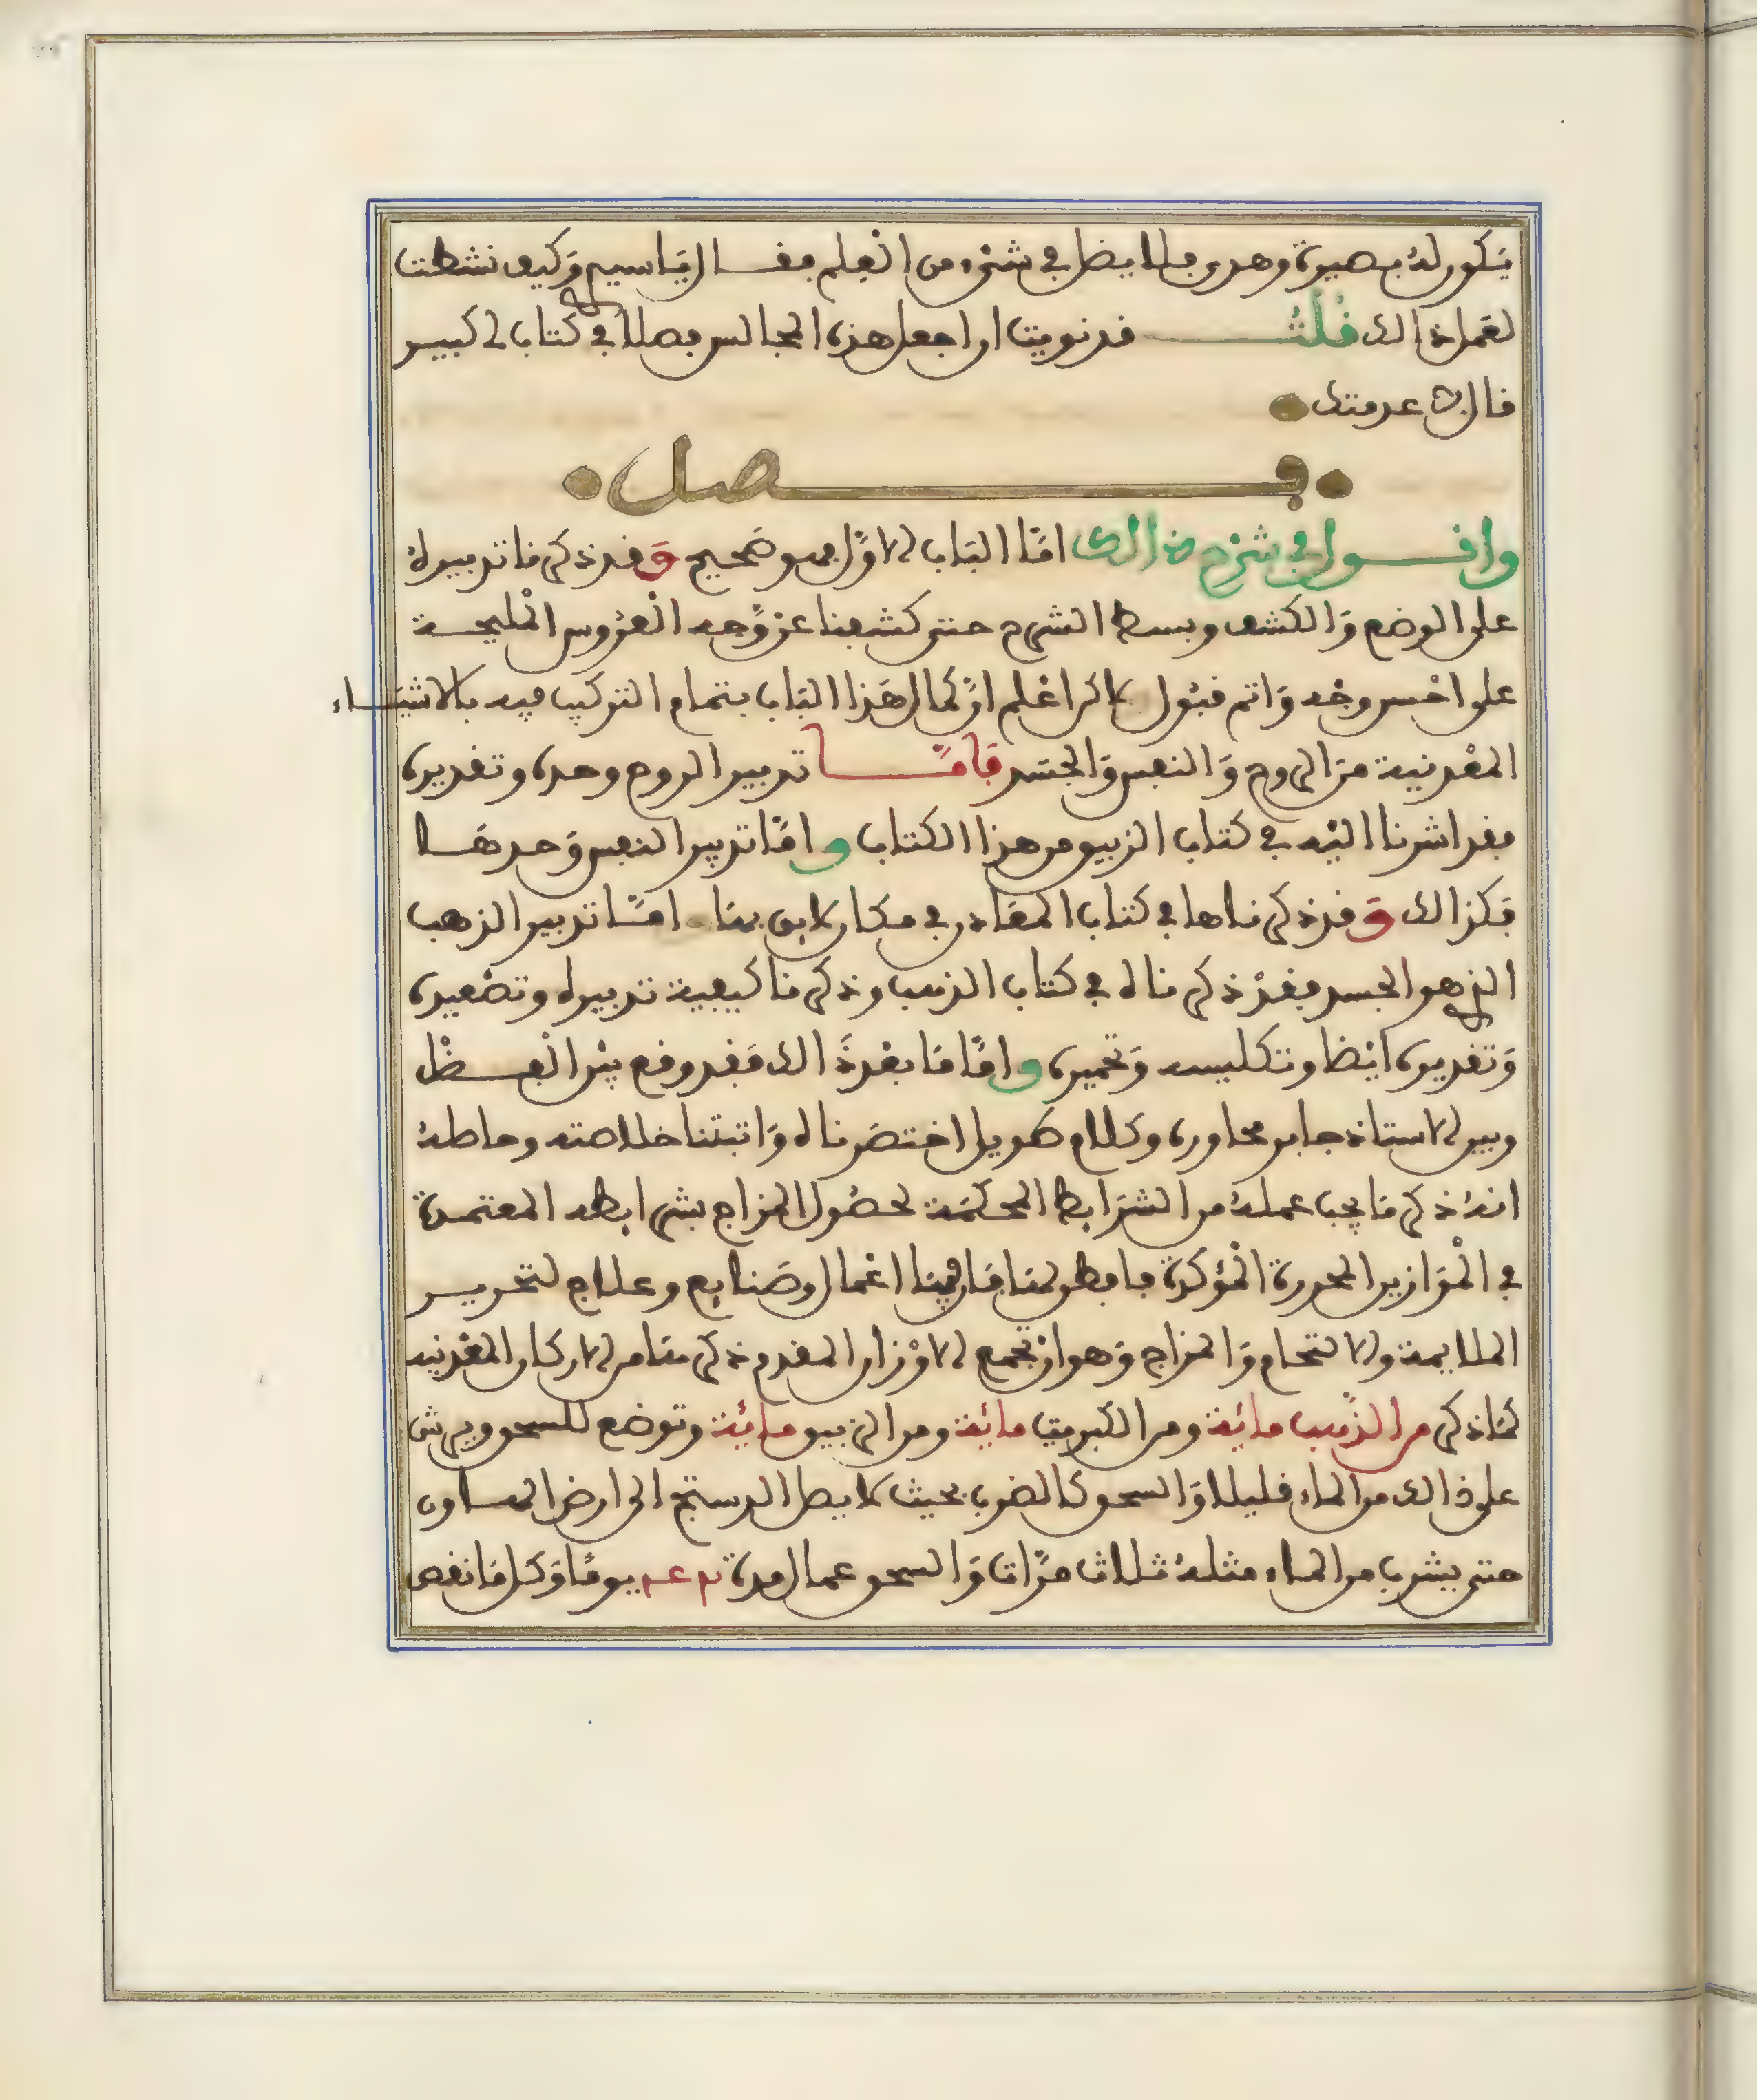 يكون له بصيرة وهدى فلا يضل في شيء من العلم فقال يا سيم وكيف نشطت
لعمل ذالك قلت قد نويت ان اجعل هذه المجالس فصلا في كتاب لى كبير
قال لا عدمتك
فصل
واقول في شرح ذالك امّا الباب الاوّل فهو صحيح وقد ذكرنا تدبيره
على الوضع والكشف وبسط الشرح حتى كشفنا عن وجه العروس المليحة
على احسن وجه واتم قبول لاكن اعلم انّ كمال هذا الباب بتمام التركيب فيه بالاشياء
المعدنية من الروح والنفس والجسد فامّا تدبير الروح وحده وتقديره
فقد اشرنا اليه في كتاب الزيبق من هذا الكتاب وامّا تدبير النفس وحدها
فكذالك وقد ذكرناها في كتاب المقادر في مكان لايق بها امّا تدبير الذهب
الذي هو الجسد فقد ذكرناه في كتاب الذهب وذكرنا كيفية تدبيره وتصغيره
وتقديره ايضا وتكليسه وتحميره وامّا ما بعد ذالك فقد وقع بين الفضل
وبين الاستاذ جابر محاورة وكلام طويل اختصرناه واثبتنا خلاصته وحاصله
انه ذكر ما يجب عمله من الشرايط المحكمة لحصول المزاج بشرايطه المعتمدة
في الموازين المحررة المؤكدة
الملايمة والالتحام والمزاج وهو ان تجمع الاوزان المقدم ذكرها من الاركان المعدنيه
كما ذكر من الذهب مائة ومن الكبريت مائة ومن الزيبق مائة وتوضع للسحق ويرش
على ذالك من الماء قليلا والسحق كالضرب بحيث لا يصل الدستج الى ارض الهاون
حتى يشرب من الماء مثله ثلاث مرّات والسحق عمال مدة يوما وكل ما نقص